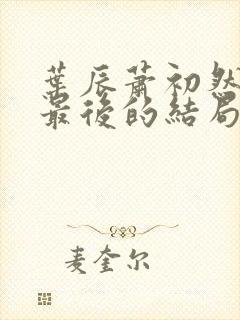 葉辰蕭初然
最後的結局
麦奎尔